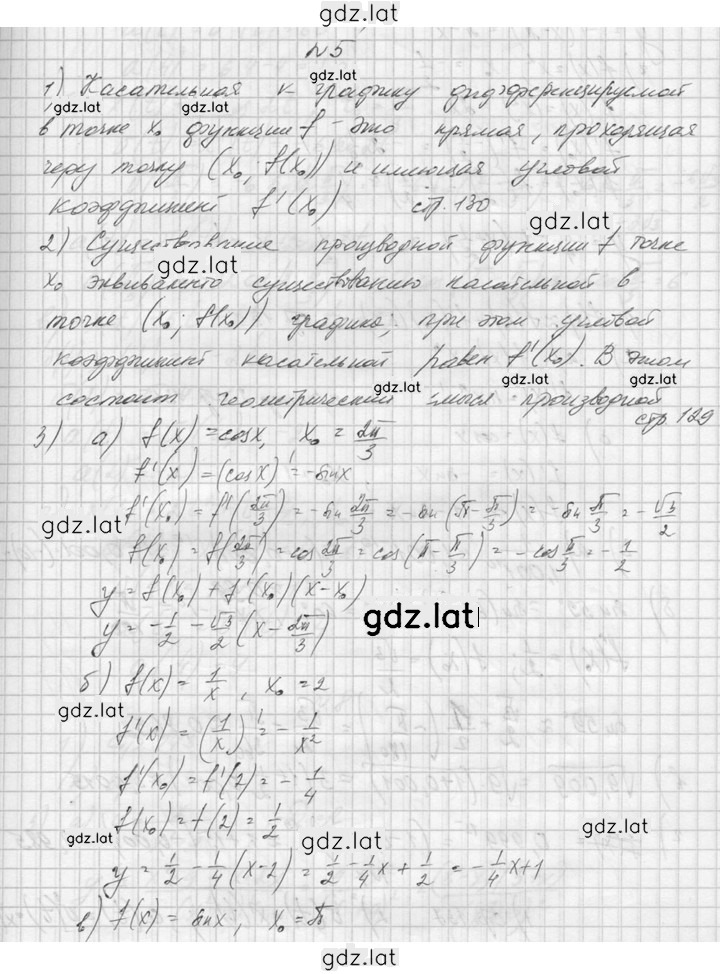 gdz.lat
№5
1) Касательная к графику дифференцируемой
gdz.lat
gdz.lat
в точке x₀ функции f - это прямая, проходящая
через точку (x₀; f(x₀)) и имеющая угловой
коэффициент f'(x₀) стр. 130
gdz.lat
2) Существование производной функции f точке
gdz.lat
x₀ эквивалентно существованию касательной в
точке (x₀; f(x₀)) графика, при этом угловой
коэффициент касательной равен f'(x₀). В этом
gdz.lat gdz.lat gdz.lat
состоит геометрический смысл производной
стр. 129
3) а) f(x) = cosx, x₀ = 2π/3
f'(x) = (cosx)' = -sinx
f'(x₀) = f'(2π/3) = -sin 2π/3 = -sin(π - π/3) = -sin π/3 = -√3/2
gdz.lat
f(x₀) = f(2π/3) = cos 2π/3 = cos(π - π/3) = -cos π/3 = -1/2
y = f(x₀) + f'(x₀)(x - x₀)
gdz.lat
y = -1/2 - √3/2 (x - 2π/3)
б) f(x) = 1/x, x₀ = 2
gdz.lat
f'(x) = (1/x)' = -1/x²
f'(x₀) = f'(2) = -1/4
f(x₀) = f(2) = 1/2
gdz.lat gdz.lat gdz.lat
y = 1/2 - 1/4(x-2) = 1/2 - 1/4x + 1/2 = -1/4x + 1
в) f(x) = sinx, x₀ = π
gdz.lat